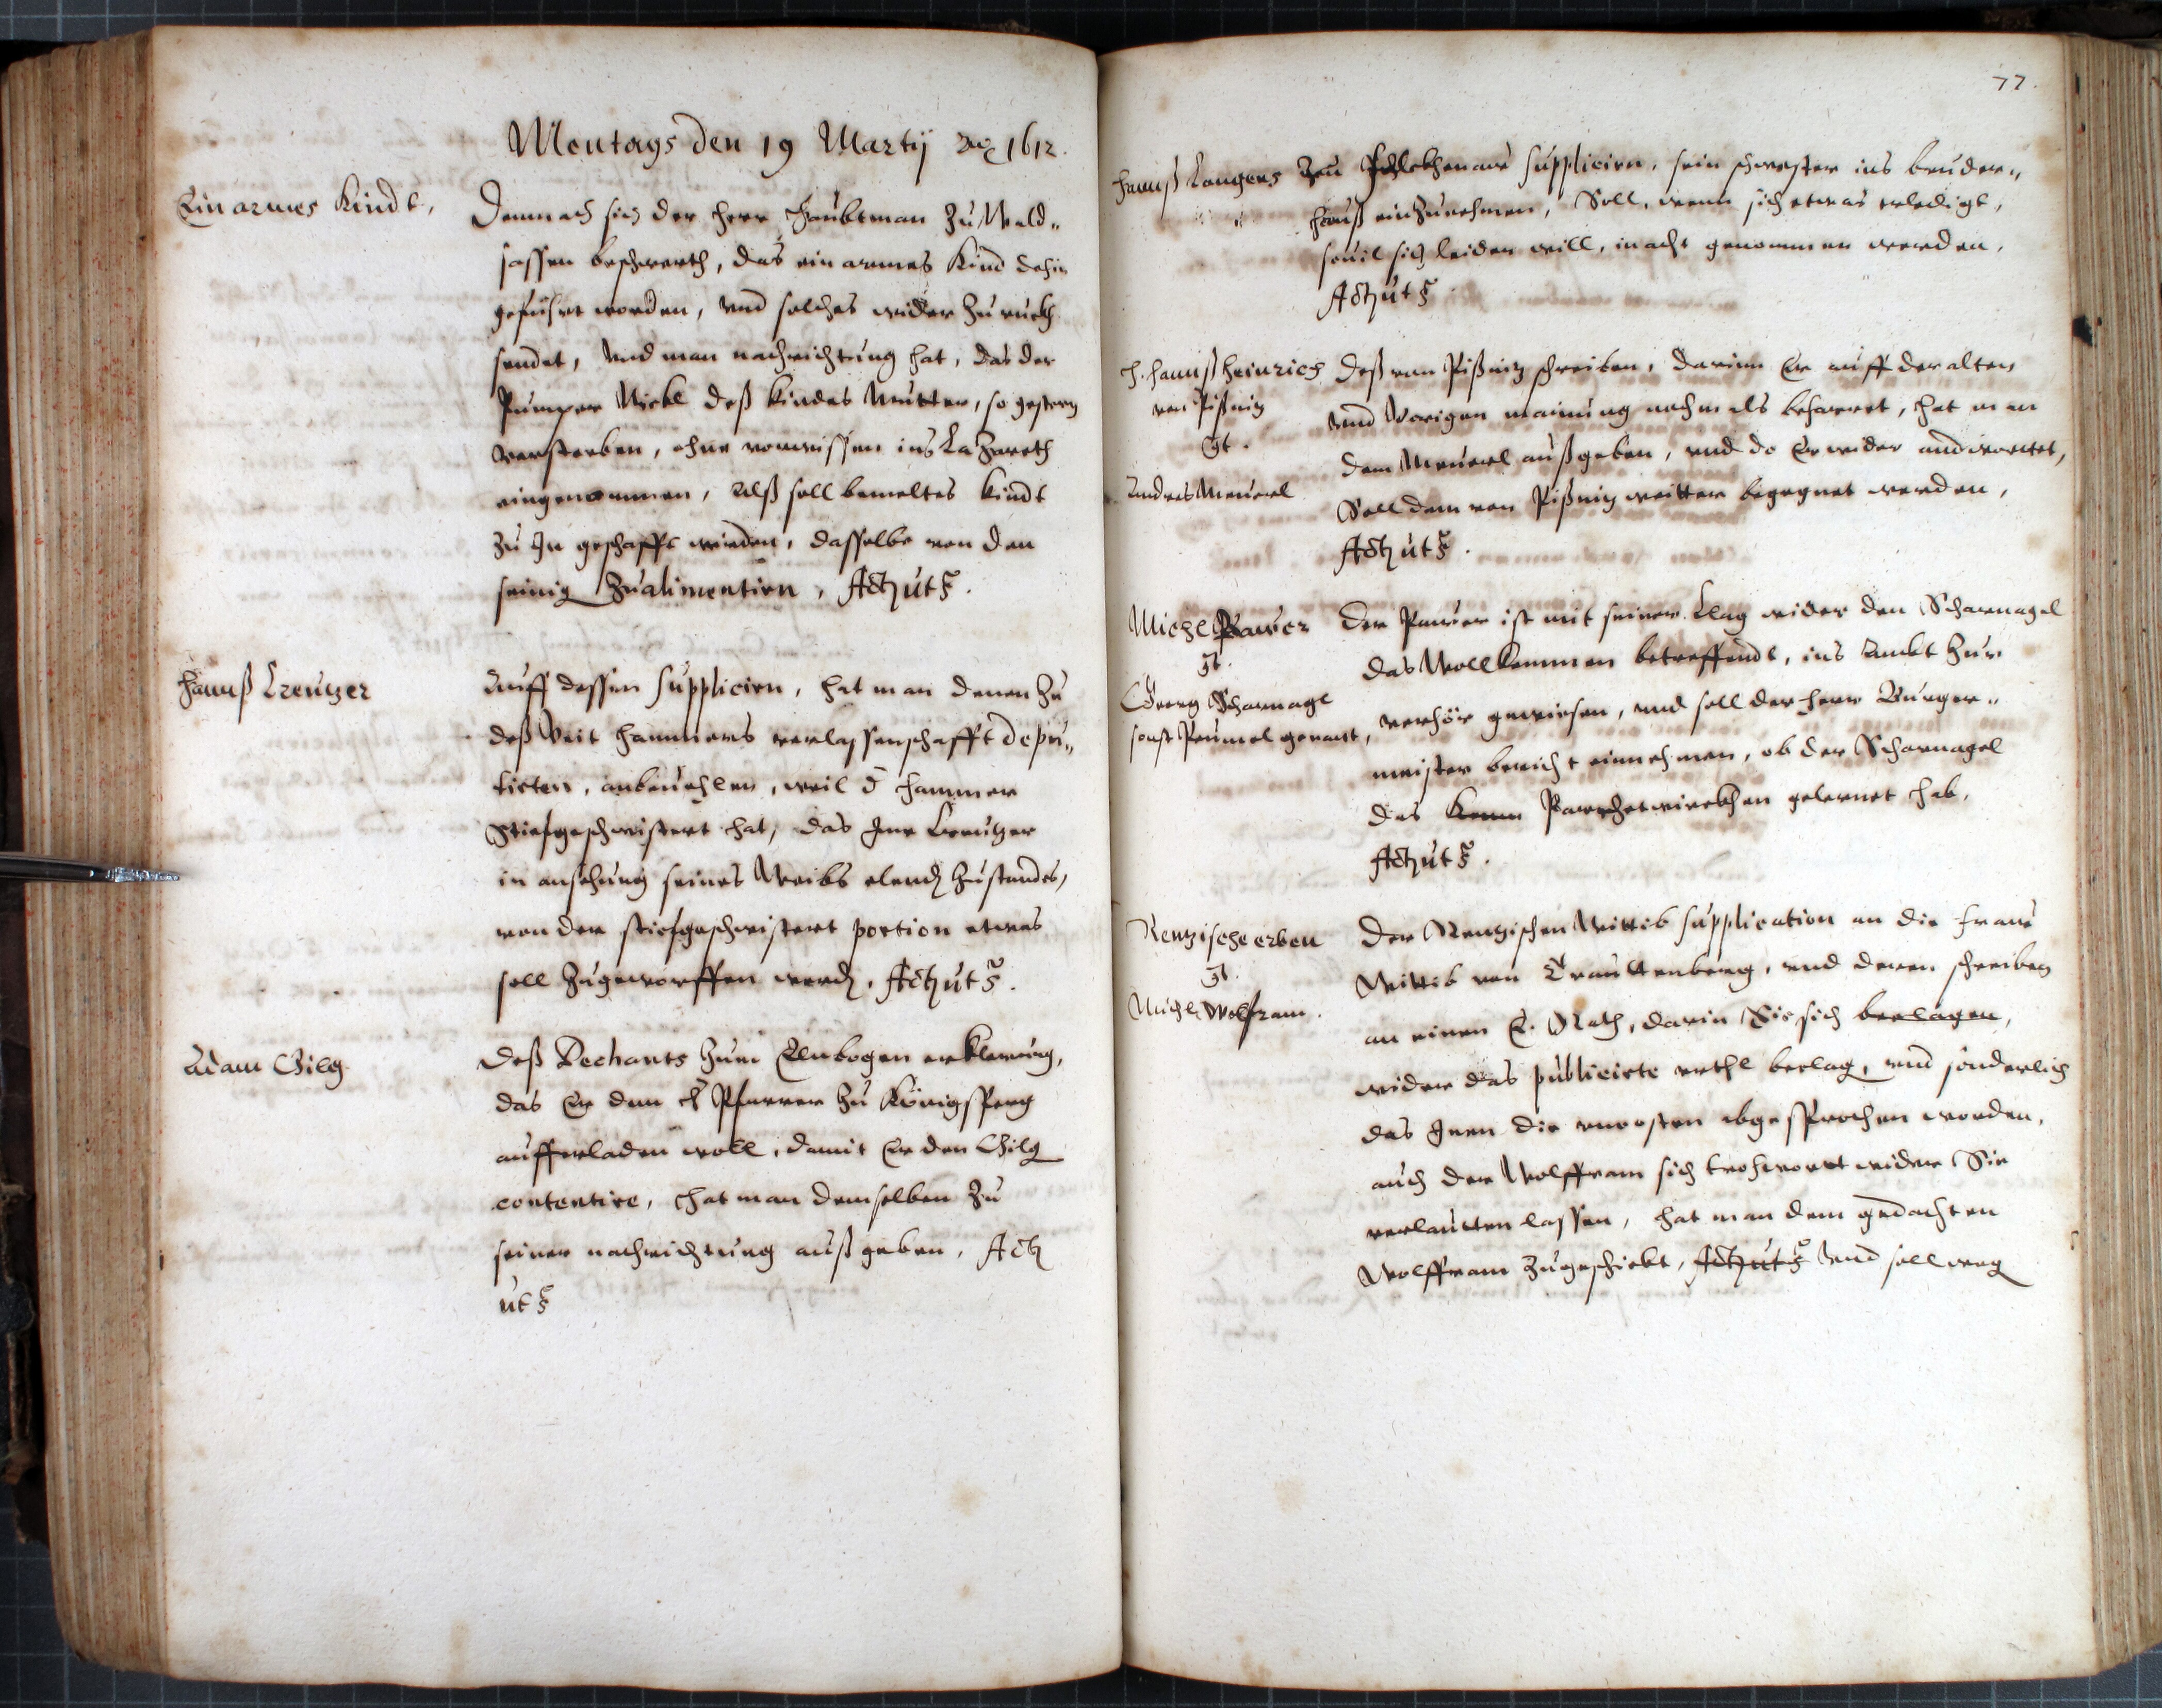 Montags den 19 Martij Ao 1612.
Ein armes Kindt,
Demnach sich der herr Haubtman zu Wald„
sassen beschwerth, das ein armes Kind dahin
gefuhrt worden, vnd solches wider zu ruckh
sendet, vnd man nachrichtung hat, das der
Pumper Nickl deß Kindes Mutter, so gestern
verstorben, ohne vorwissen ins Lazareth
eingenommen, Alß soll bemeltes Kindt
zu Jm geschafft werden, dasselbe von dem
seinig zu alimentirn, Act ut s.
Hannß Creutzer
Auff dessen supplicirn, hat man denen zu
deß Veit Hammers verlassenschafft depu„
tirten, anbeuehlen, weil d Hammer
Stiefgeschwistert hat, das Jme Creutzer
in ansehung seines Weibs elend zustandes,
von der stiefgeschwistert portion etwas
soll zugeworffen werd, Act ut s.
Adam Gilg
Deß Dechants zum Elnbogen erklerung,
das Er den H Pfarrer zu Königsperg
aufferladen woll, damit Er den Gilg
contentire, hat man demselben zu
seiner nachrichtung außgeben, Act
ut s
77.
Hannß Langers
zu supplicirn, sein schwester ins bruder„
hauß einzunehmen, Soll, wenn sich etwas erledigt,
souil sich leiden will, in acht genommen werden,
Act ut s
H. Hannß Heinrich
von Pißnitz
Ct.
Andres Meuerl
Deß von Pißnitz schreiben, darinn Er auff der alten
vnd Vorigen mainung nachmals beharret, hat man
dem Meuerl außgeben, vnd do Er wider andtwortet,
Soll dem von Pißnitz weitter begegnet werden,
Act ut s.
Michl Pawer
Ct.
Georg Scharnagl
sonst Peumel genant,
Der Pawer ist mit seiner Clag wider den Scharnagel
das Wollkemmen betreffendt, ins Ambt zur
verhör gewiesen, vnd soll der herr Burger„
meister bericht einnehmen, ob der Scharnagel
das Parchetwirckhen gelernet hab,
Act ut s.
Rentzische erben
Ct.
Michl Wolfram.
Der Rentzischen Wittib supplication an die fraw
Wittib von Trauttenberg, vnd deren schreiben
an einen E. Rath, darin Sie sich beclagen,
wider das publicirte vrthl beclag, vnd sonderlich
das Jnen die vncosten abgesprochen worden,
auch der Wolffram sich trohwort wider Sie
verlautten lassen, hat man dem gedachten
Wolffram zugeschickt, Act ut s vnd soll